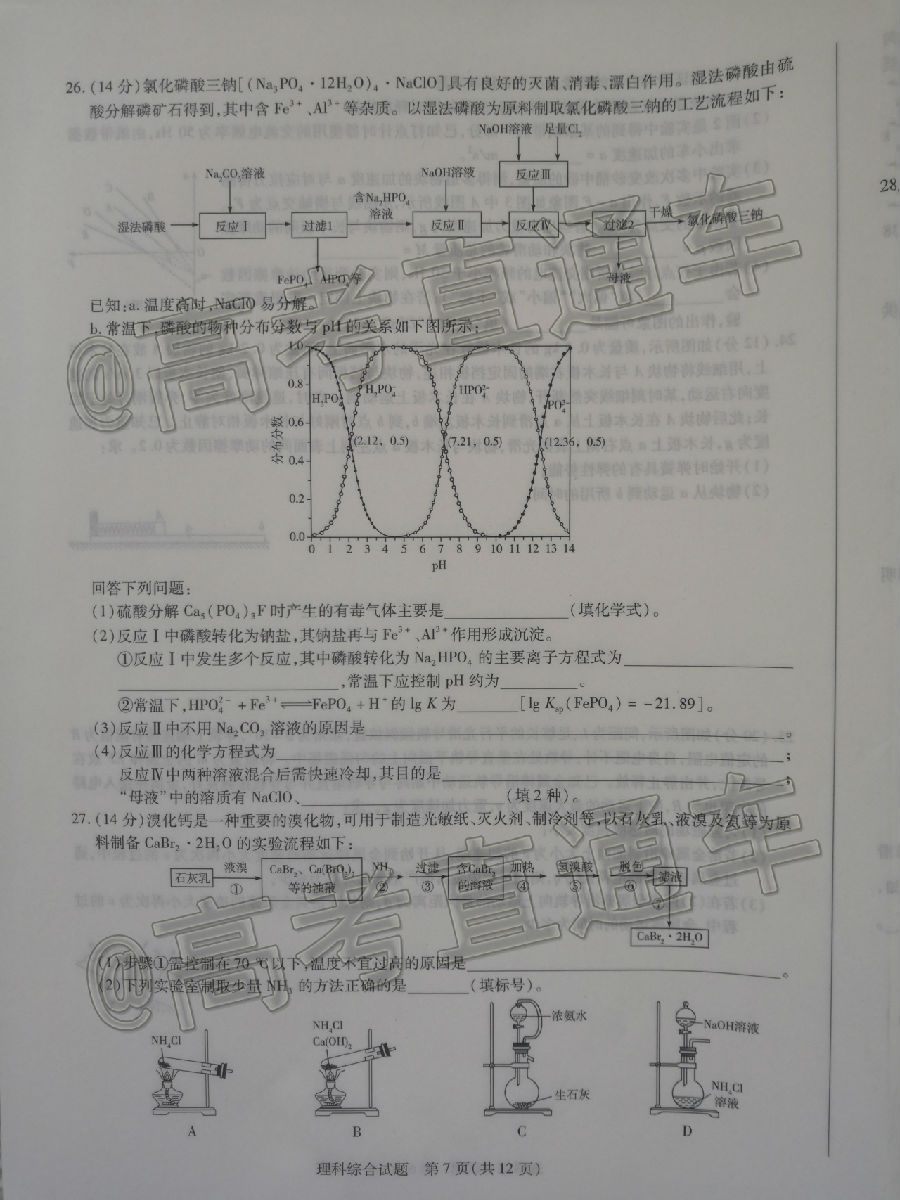 26. (14分)氯化磷酸三钠[(Na₃PO₄·12H₂O)₄·NaClO]具有良好的灭菌、消毒、漂白作用。湿法磷酸由硫
酸分解磷矿石得到,其中含Fe³⁺、Al³⁺等杂质。以湿法磷酸为原料制取氯化磷酸三钠的工艺流程如下:
NaOH溶液 足量Cl₂
Na₂CO₃溶液 NaOH溶液 反应Ⅲ
含Na₂HPO₄
溶液
湿法磷酸 反应Ⅰ 过滤1 反应Ⅱ 反应Ⅳ 过滤2 干燥 氯化磷酸三钠
FePO₄、AlPO₄等 母液
已知:a.温度高时,NaClO易分解。
b.常温下,磷酸的物种分布分数与pH的关系如下图所示:
1.0
0.8
0.6
0.4
0.2
0.0
分布分数
H₃PO₄ H₂PO₄⁻ HPO₄²⁻ PO₄³⁻
(2.12, 0.5) (7.21, 0.5) (12.36, 0.5)
0 1 2 3 4 5 6 7 8 9 10 11 12 13 14
pH
回答下列问题:
(1)硫酸分解Ca₅(PO₄)₃F时产生的有毒气体主要是 (填化学式)。
(2)反应Ⅰ中磷酸转化为钠盐,其钠盐再与Fe³⁺、Al³⁺作用形成沉淀。
①反应Ⅰ中发生多个反应,其中磷酸转化为Na₂HPO₄的主要离子方程式为
,常温下应控制pH约为 。
②常温下,HPO₄²⁻+Fe³⁺⇌FePO₄+H⁺的lg K为 [lg Kₛₚ(FePO₄)=-21.89]。
(3)反应Ⅱ中不用Na₂CO₃溶液的原因是 。
(4)反应Ⅲ的化学方程式为 ;
反应Ⅳ中两种溶液混合后需快速冷却,其目的是 ;
“母液”中的溶质有NaClO、 (填2种)。
27. (14分)溴化钙是一种重要的溴化物,可用于制造光敏纸、灭火剂、制冷剂等,以石灰乳、液溴及氨等为原
料制备CaBr₂·2H₂O的实验流程如下:
石灰乳 液溴 ① CaBr₂、Ca(BrO₃)₂等的浊液 NH₃ ② 过滤 ③ 含CaBr₂的溶液 加热 ④ 氢溴酸 ⑤ 脱色 ⑥ 滤液
⑦
CaBr₂·2H₂O
(1)步骤①需控制在70 ℃以下,温度不宜过高的原因是 。
(2)下列实验室制取少量NH₃的方法正确的是 (填标号)。
NH₄Cl
NH₄Cl
Ca(OH)₂
浓氨水
生石灰
NaOH溶液
NH₄Cl
溶液
A B C D
理科综合试题 第7页(共12页)
28.
@高考直通车
@高考直通车